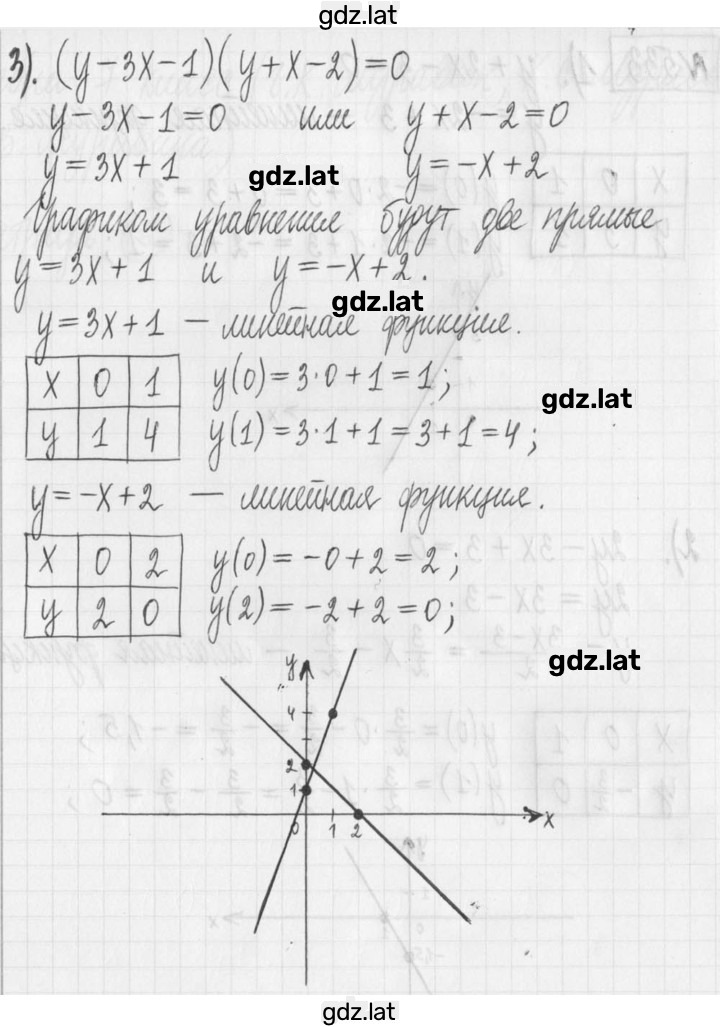 gdz.lat
3). (y-3x-1)(y+x-2)=0
y-3x-1=0 или y+x-2=0
y=3x+1 y=-x+2
gdz.lat
Графиком уравнения будут две прямые
y=3x+1 и y=-x+2.
gdz.lat
y=3x+1 — линейная функция.
x 0 1 y(0)=3·0+1=1;
gdz.lat
y 1 4 y(1)=3·1+1=3+1=4;
y=-x+2 — линейная функция.
x 0 2 y(0)=-0+2=2;
y 2 0 y(2)=-2+2=0;
gdz.lat
y
4
2
1
0 1 2 x
gdz.lat